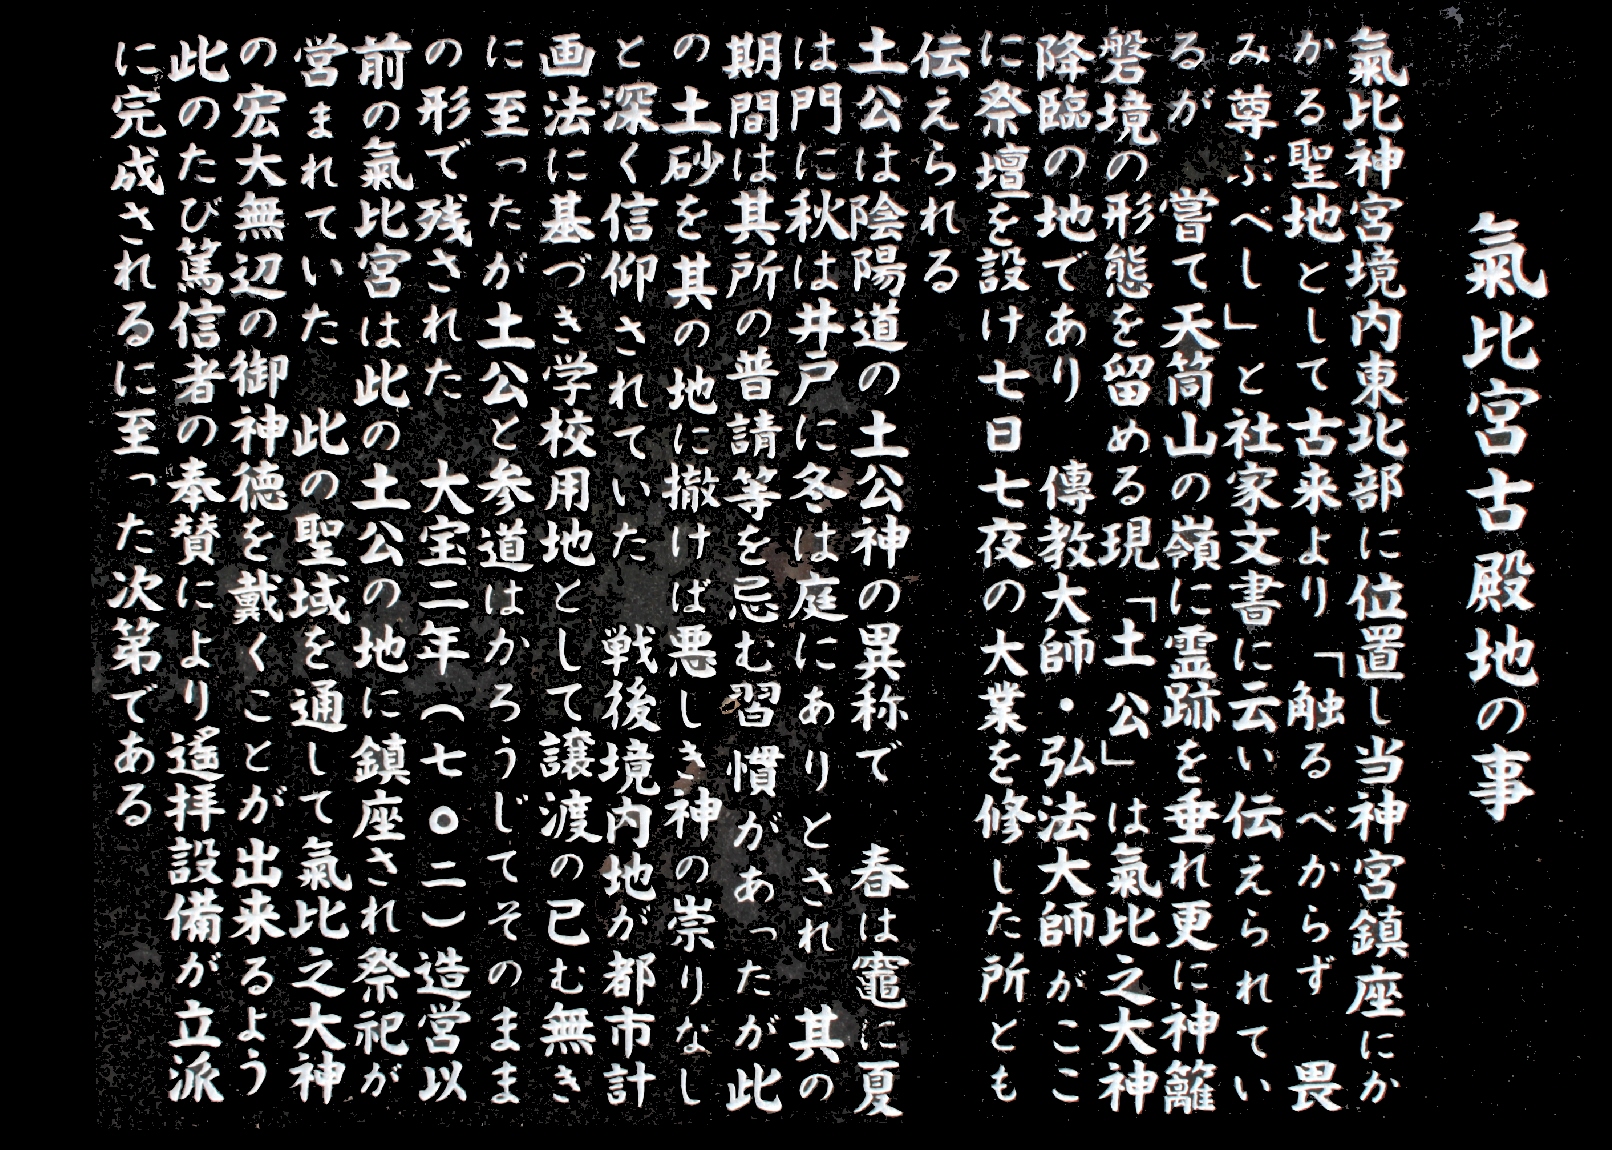 氣比宮古殿地の事
氣比神宮境内東北部に位置し当神宮鎮座にか
かる聖地として古来より「触るべからず　畏
み尊ぶべし」と社家文書に云い伝えられてい
るが　嘗て天筒山の嶺に霊跡を垂れ更に神籬
磐境の形態を留める現「土公」は氣比之大神
降臨の地であり　傳教大師・弘法大師がここ
に祭壇を設け七日七夜の大業を修した所とも
伝えられる
土公は陰陽道の土公神の異称で　春は竈に夏
は門に秋は井戸に冬は庭にありとされ　其の
期間は其所の普請等を忌む習慣があったが此
の土砂を其の地に撤けば悪しき神の崇りなし
と深く信仰されていた　戦後境内地が都市計
画法に基づき学校用地として譲渡の已む無き
に至ったが土公と参道はかろうじてそのまま
の形で残された　大宝二年（七〇二）造営以
前の氣比宮は此の土公の地に鎮座され祭祀が
営まれていた　此の聖域を通して氣比之大神
の宏大無辺の御神徳を戴くことが出来るよう
此のたび篤信者の奉賛により遙拝設備が立派
に完成されるに至った次第である